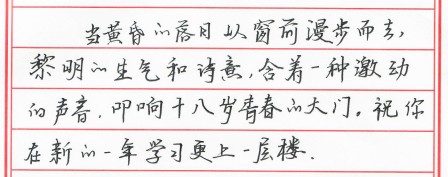 当黄昏的落日从窗前漫步而去,
黎明的生气和诗意,含着一种激动
的声音,叩响十八岁青春的大门。祝你
在新的一年学习更上一层楼.